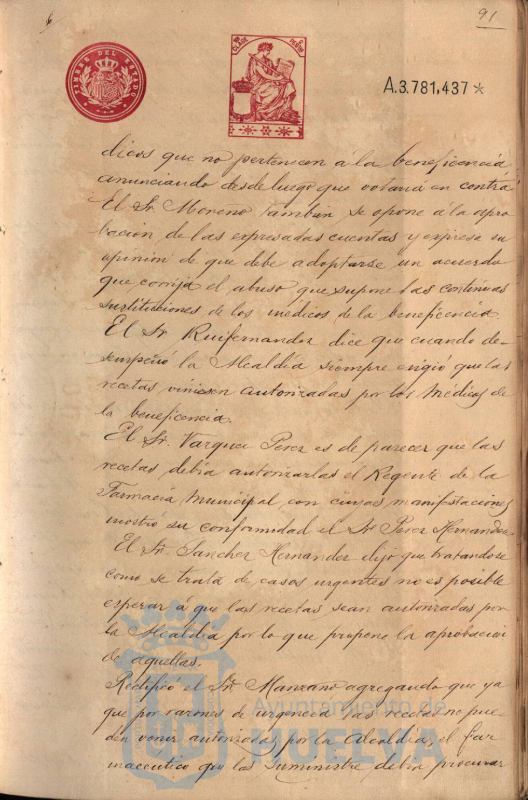 91
TIMBRE DEL ESTADO
A.3.781,437*
dicos que no pertenecen á la beneficencia
anunciando desde luego que votaria en contra
El Sr. Moreno tambien se opone á la apro-
bacion de las expresadas cuentas y expresa su
opinion de que debe adoptarse un acuerdo
que corrija el abuso que supone las continuas
sustituciones de los médicos de la beneficencia.
El Sr Ruifernandez dice que cuando de-
sempeñó la Alcaldía siempre exigió que las
recetas viniesen autorizadas por los Médicos de
la beneficencia.
El Sr. Vazquez Perez es de parecer que las
recetas debia autorizarlas el Regente de la
Farmacia Municipal con cuyas manifestaciones
mostró su conformidad el Sr Perez Hernandez
El Sr. Sanchez Hernandez dijo que tratandose
como se trata de casos urgentes no es posible
esperar á que las recetas sean autorizadas por
la Alcaldia por lo que propone la aprobacion
de aquellas.
Rectificó el Sr. Manzano agregando que ya
que por razones de urgencia las recetas no pue-
den venir autorizadas por la Alcaldia, el far
maceutico que las suministre debia procurar
Ayuntamiento de
HUELVA